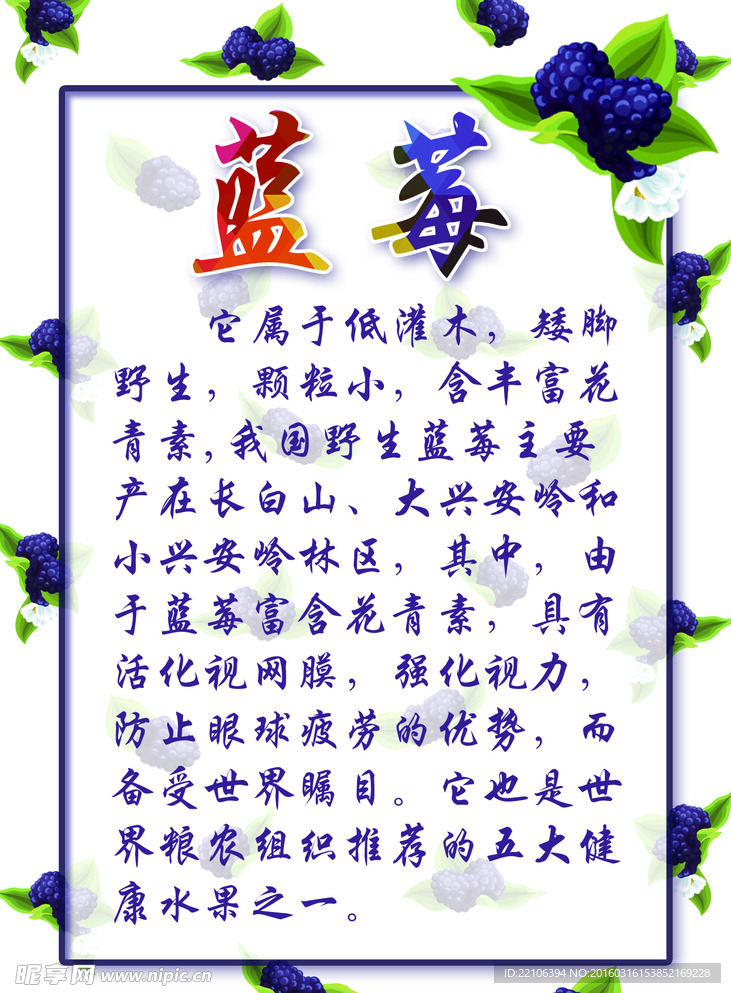 蓝莓
它属于低灌木，矮脚
野生，颗粒小，含丰富花
青素,我国野生蓝莓主要
产在长白山、大兴安岭和
小兴安岭林区，其中，由
于蓝莓富含花青素，具有
活化视网膜，强化视力，
防止眼球疲劳的优势，而
备受世界瞩目。它也是世
界粮农组织推荐的五大健
康水果之一。
昵享网 www.nipic.cn
ID:22106394 NO:20160316153852169228